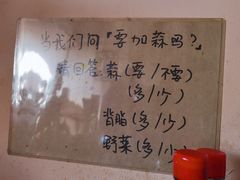 当我们问『要加蒜吗？』
请回答 蒜(要/不要)
(多/少)
背脂(多/少)
野菜(多/少)